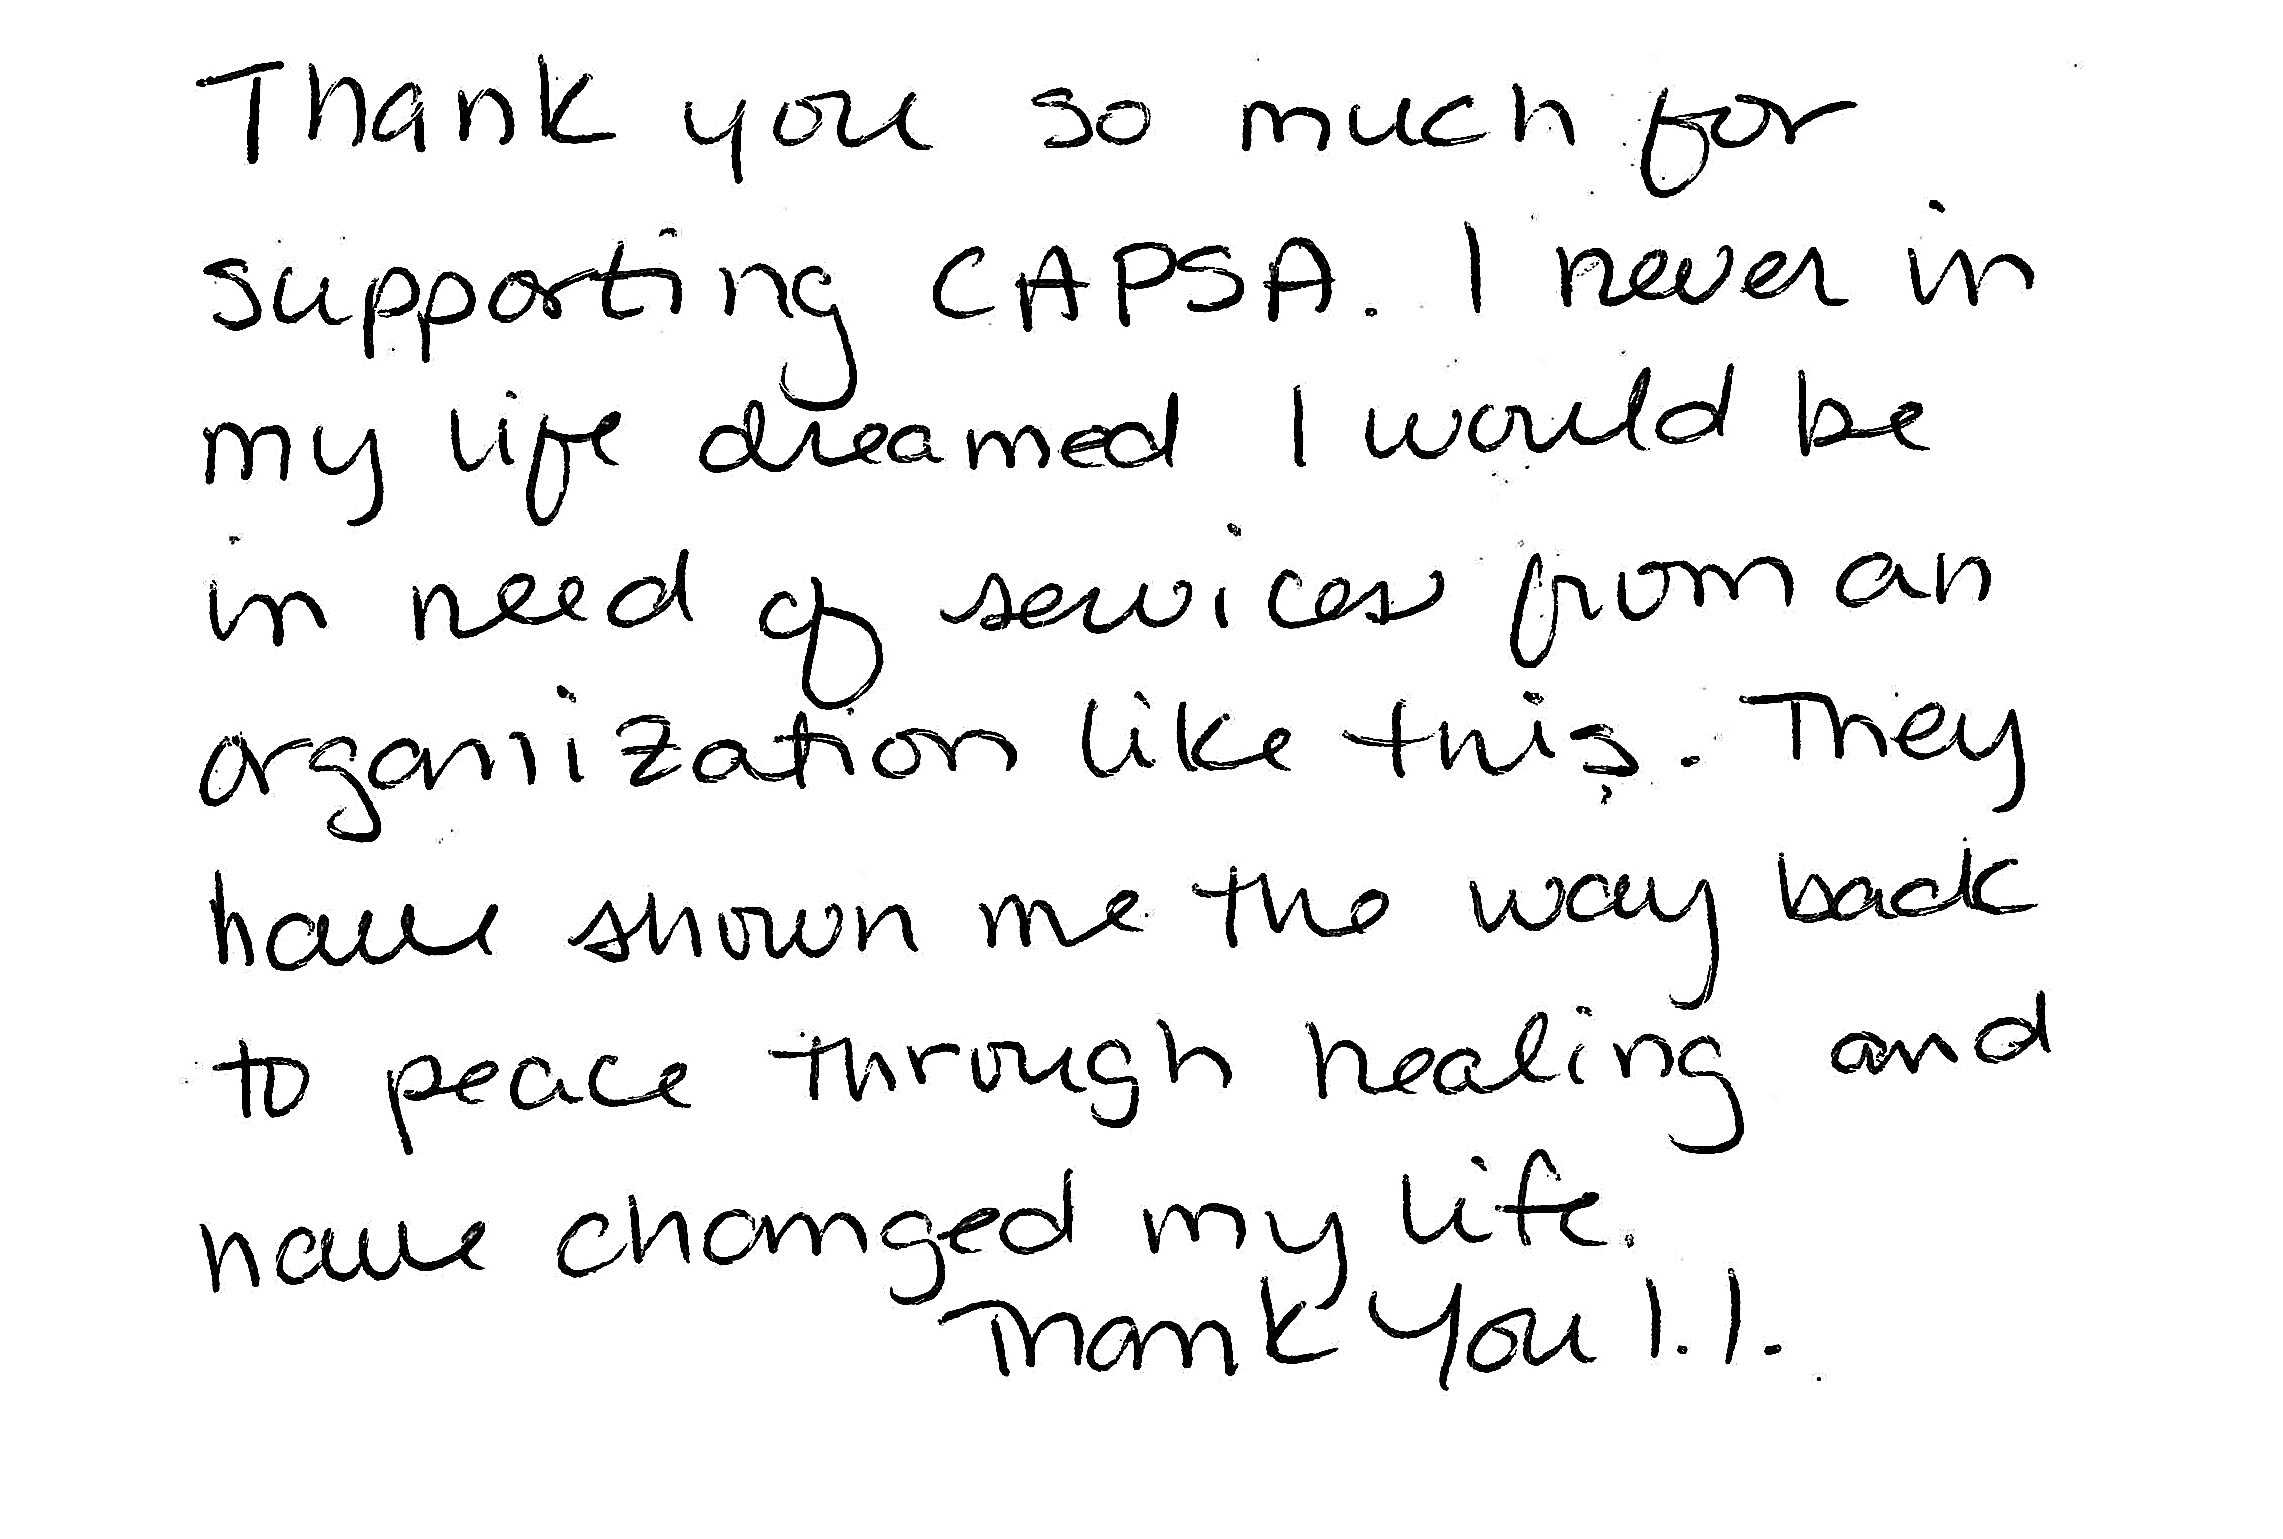 Thank you so much for
supporting CAPSA. I never in
my life dreamed I would be
in need of services from an
organization like this. They
have shown me the way back
to peace through healing and
have changed my life.
Thank You!!